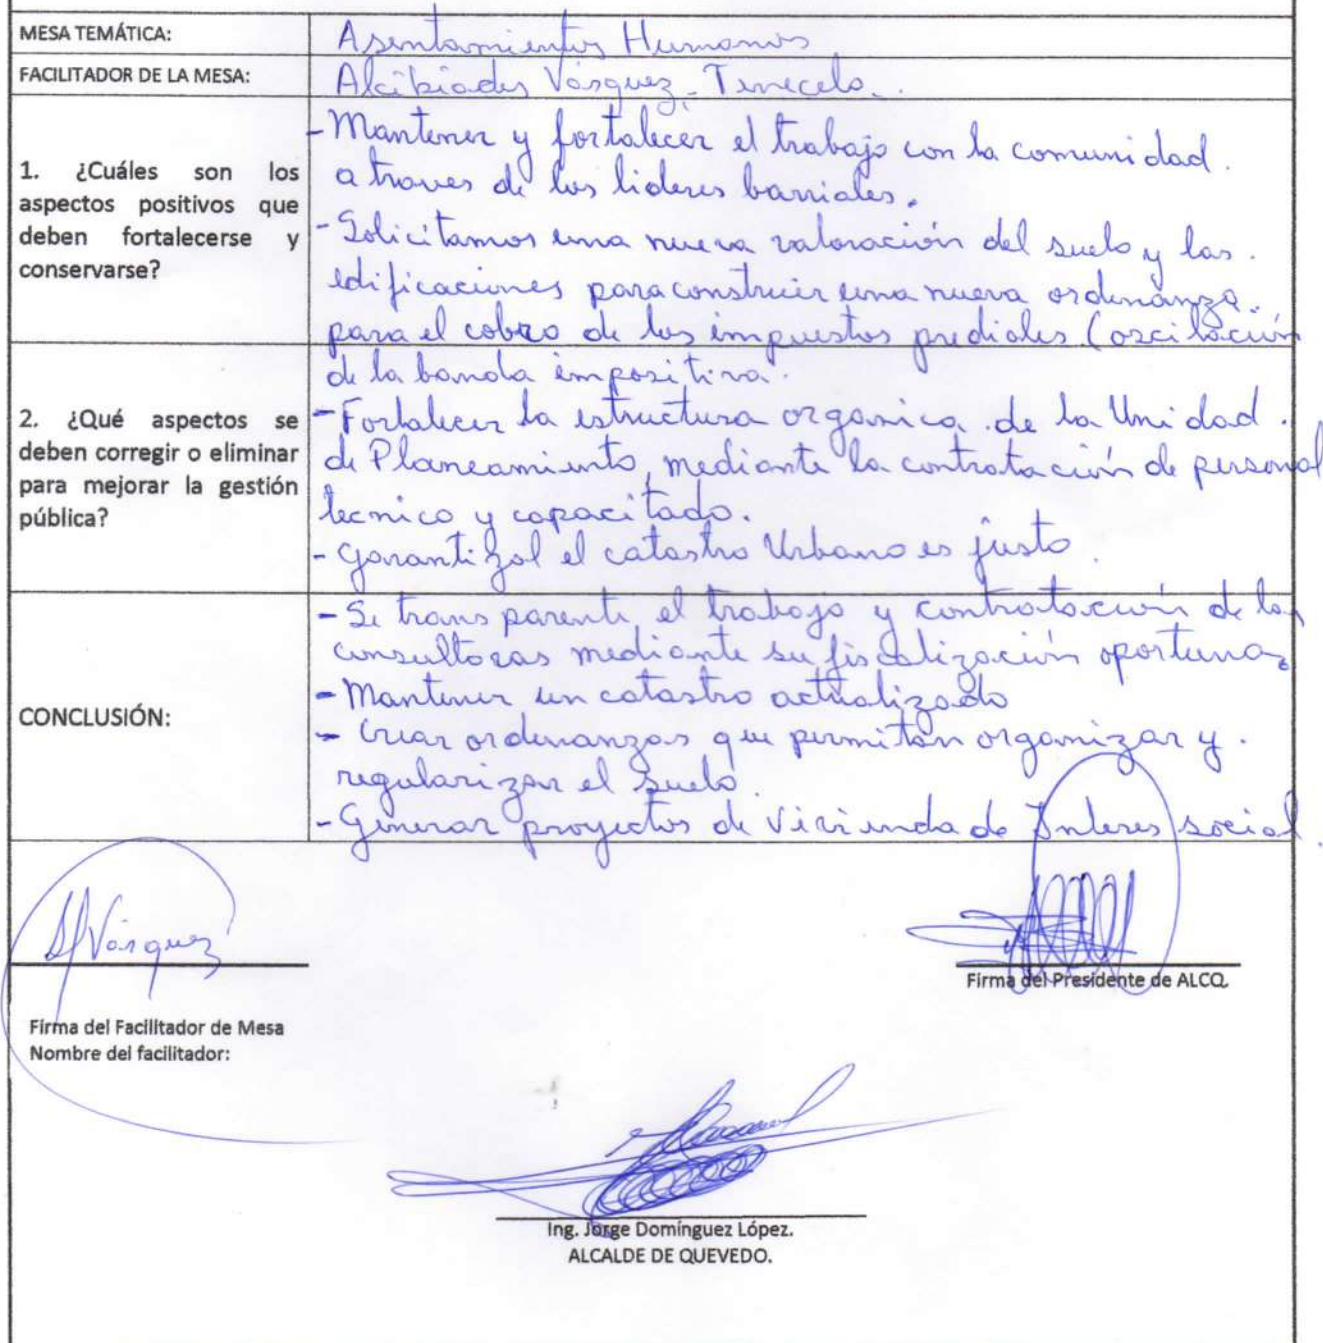 MESA TEMÁTICA: Asentamientos Humanos
FACILITADOR DE LA MESA: Alcibiades Vásquez
1. ¿Cuáles son los
aspectos positivos que
deben fortalecerse y
conservarse?
- Mantener y fortalecer el trabajo con la comunidad.
a traves de los lideres barriales.
- Solicitamos una nueva valoración del suelo y las.
edificaciones para construir una nueva ordenanza.
para el cobro de los impuestos prediales (oscilación
de la banda impositiva.
2. ¿Qué aspectos se
deben corregir o eliminar
para mejorar la gestión
pública?
- Fortalecer la estructura organica de la Unidad.
de Planeamiento, mediante la contratación de personal
tecnico y capacitado.
- Garantizal el catastro Urbano es justo.
CONCLUSIÓN:
- Se transparente el trabajo y contratación de las
consultoras mediante su fiscalización oportuna
- Mantener un catastro actualizado
- Crear ordenanzas que permitan organizar y.
regularizar el suelo.
- Generar proyectos de Vivienda de Interes social.
Vásquez
Firma del Presidente de ALCQ.
Firma del Facilitador de Mesa
Nombre del facilitador:
Ing. Jorge Domínguez López.
ALCALDE DE QUEVEDO.